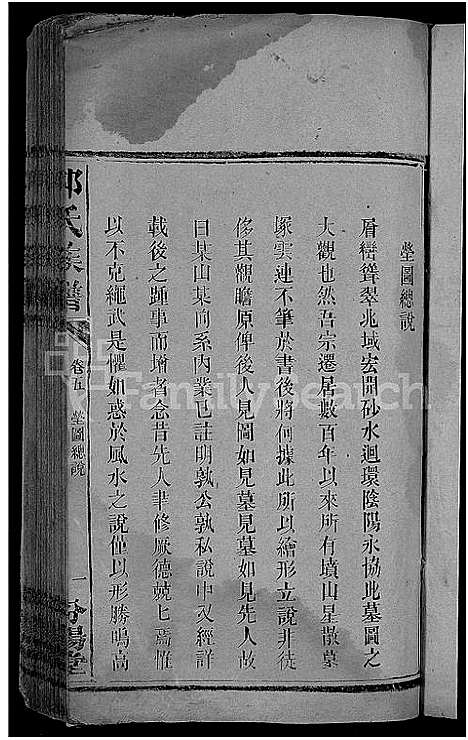 塋圖總說
層巒聳翠兆域宏開砂水迴環陰陽永協此墓圖之
大觀也然吾宗遷居數百年以來所有墳山星散墓
塚雲連不筆於書後將何據此所以繪形立說非徒
侈其觀瞻原俾後人見圖如見墓見墓如見先人故
曰某山某向系內業已註明孰公孰私說中又經詳
載後之踵事而增者念昔先人聿修厥德兢乜焉惟
以不克繩武是懼如惑於風水之說僅以形勝鳴高
氏族譜
卷五 塋圖總說
一
汾陽堂
FamilySearch